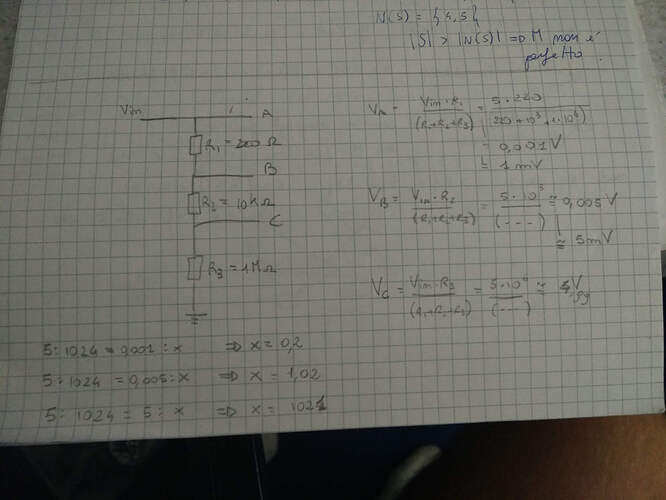 N(S) = {4,5}
|S| > |N(S)| => M non è
perfetto.
Vin
i
A
R1 = 200 Ω
B
R2 = 10KΩ
C
R3 = 1MΩ
VA = Vin·R1 / (R1+R2+R3) = 5·220 / (220+10³+1·10⁶)
= 0,001V
= 1mV
VB = Vin·R2 / (R1+R2+R3) = 5·10³ / (---) ≅ 0,005V
≅ 5mV
VC = Vin·R3 / (R1+R2+R3) = 5·10⁶ / (---) ≅ 4,99V
5:1024 = 0,001:x => x = 0,2
5:1024 = 0,005:x => x = 1,02
5:1024 = 5:x => x = 1021